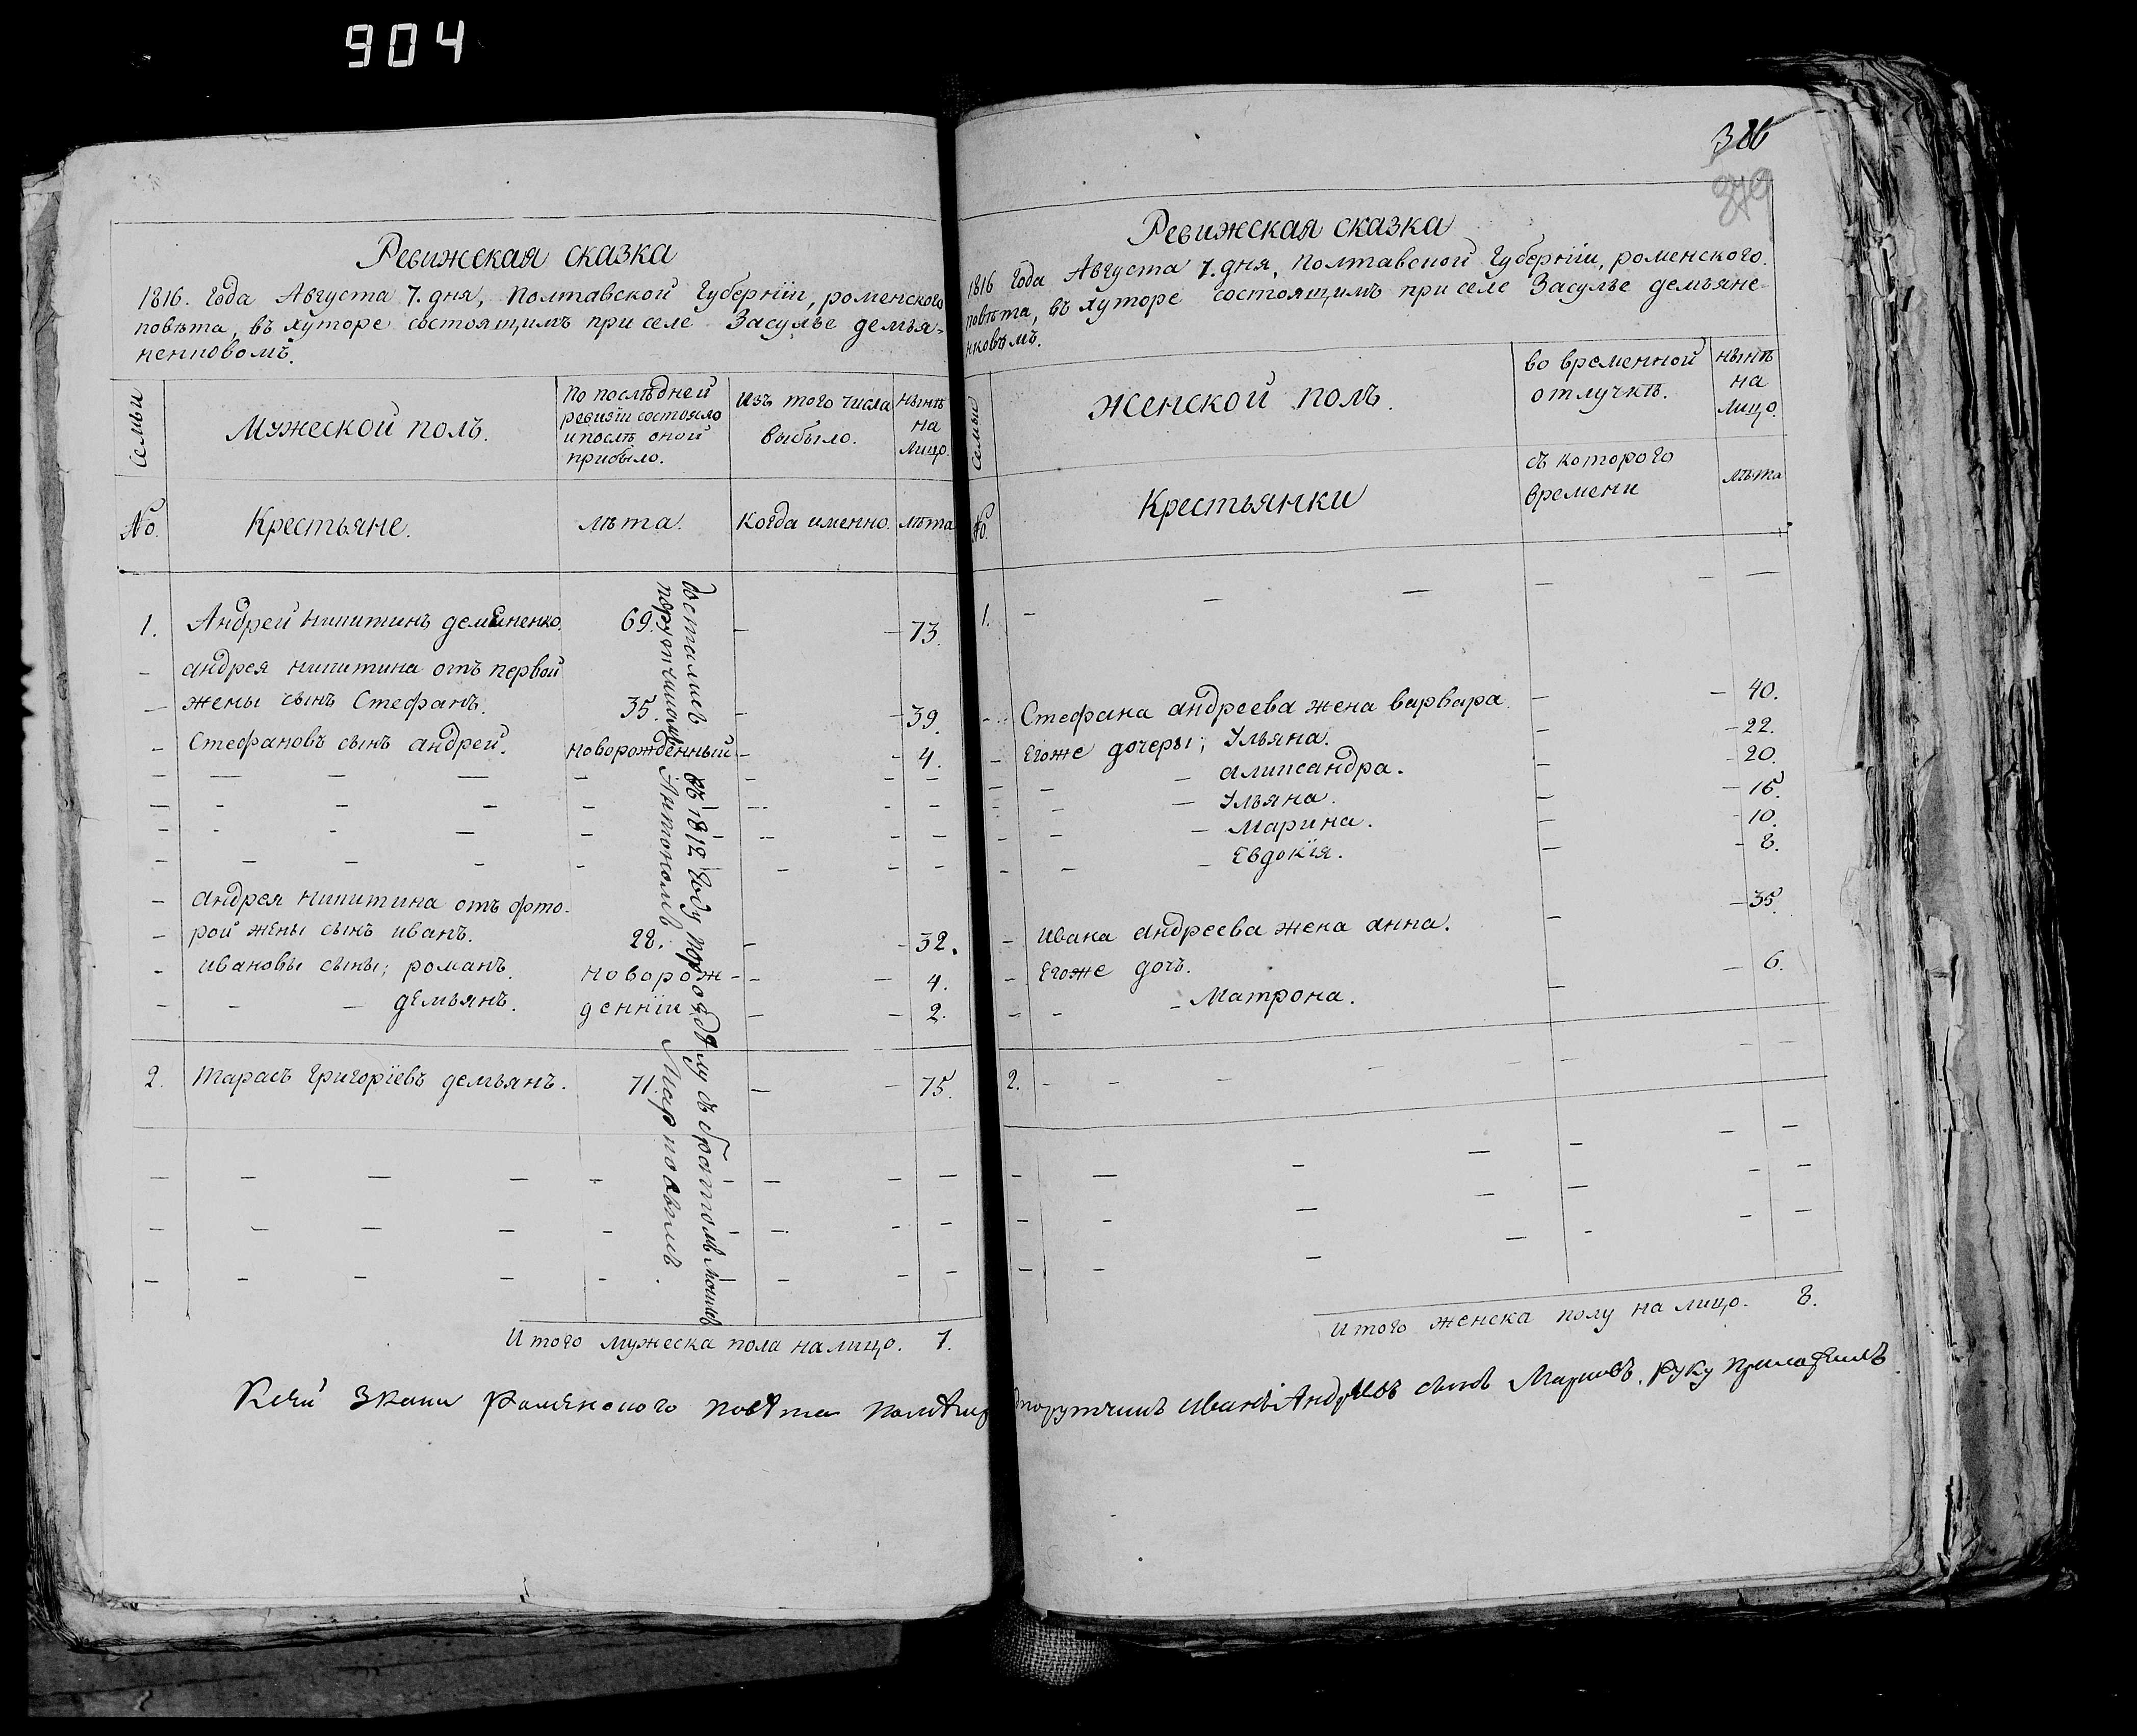 904
Ревижская сказка
1816. года Августа 7. дня, Полтавской Губернїи, роменского
повѣта, въ хуторе состоящимъ при селе Засулье демья-
ненковомъ.
Семьи
Мужеской полъ.
По послѣдней
ревизїи состояло
и послѣ оной
прибыло.
Изъ того числа
выбыло.
нынѣ
на
лицо.
№.
Крестьяне.
лѣта.
Когда именно.
лѣта
1. Андрей никитинъ демяненко. 69. — — 73.
— андрея никитина отъ первой
— жены сынъ Стефанъ. 35. — — 39.
— Стефановъ сынъ андрей. новорожденный — — 4.
— андрея никитина отъ фто-
— рой жены сынъ иванъ. 28. — — 32.
— ивановы сыны; романъ. новорож- — — 4.
— — — демьянъ. деннїи — — 2.
2. Тарасъ григорїевъ демьянъ. 71. — — 75.
достались въ 1812 году по роздѣлу съ братомъ моимъ
порутчикомъ Антономъ Марковымъ.
Итого мужеска пола налицо. 7.
386
379
Ревижская сказка
1816 года Августа 7. дня, Полтавской Губернїи, роменского.
повѣта, въ хуторе состоящимъ при селе Засулье демьяне-
нковомъ.
Семьи
Женской полъ.
во временной
отлучкѣ.
нынѣ
на
лицо.
№.
Крестьянки
съ которого
времени
лѣта
1. — — — — — —
— Стефана андреева жена варвара. — — 40.
— Егоже дочеры; Ульяна. — — 22.
— — — аликсандра. — — 20.
— — — Ульяна. — — 16.
— — — Марина. — — 10.
— — — Евдокїя. — — 8.
— ивана андреева жена анна. — — 35.
— Егоже дочъ.
— — — Матрона. — — 6.
2. — — — — — — —
Итого женска полу на лицо. 8.
Ксей зкаски Роменского повѣта помѣщик порутчикъ Иванъ Андреевъ сынъ Марковъ. руку приложилъ